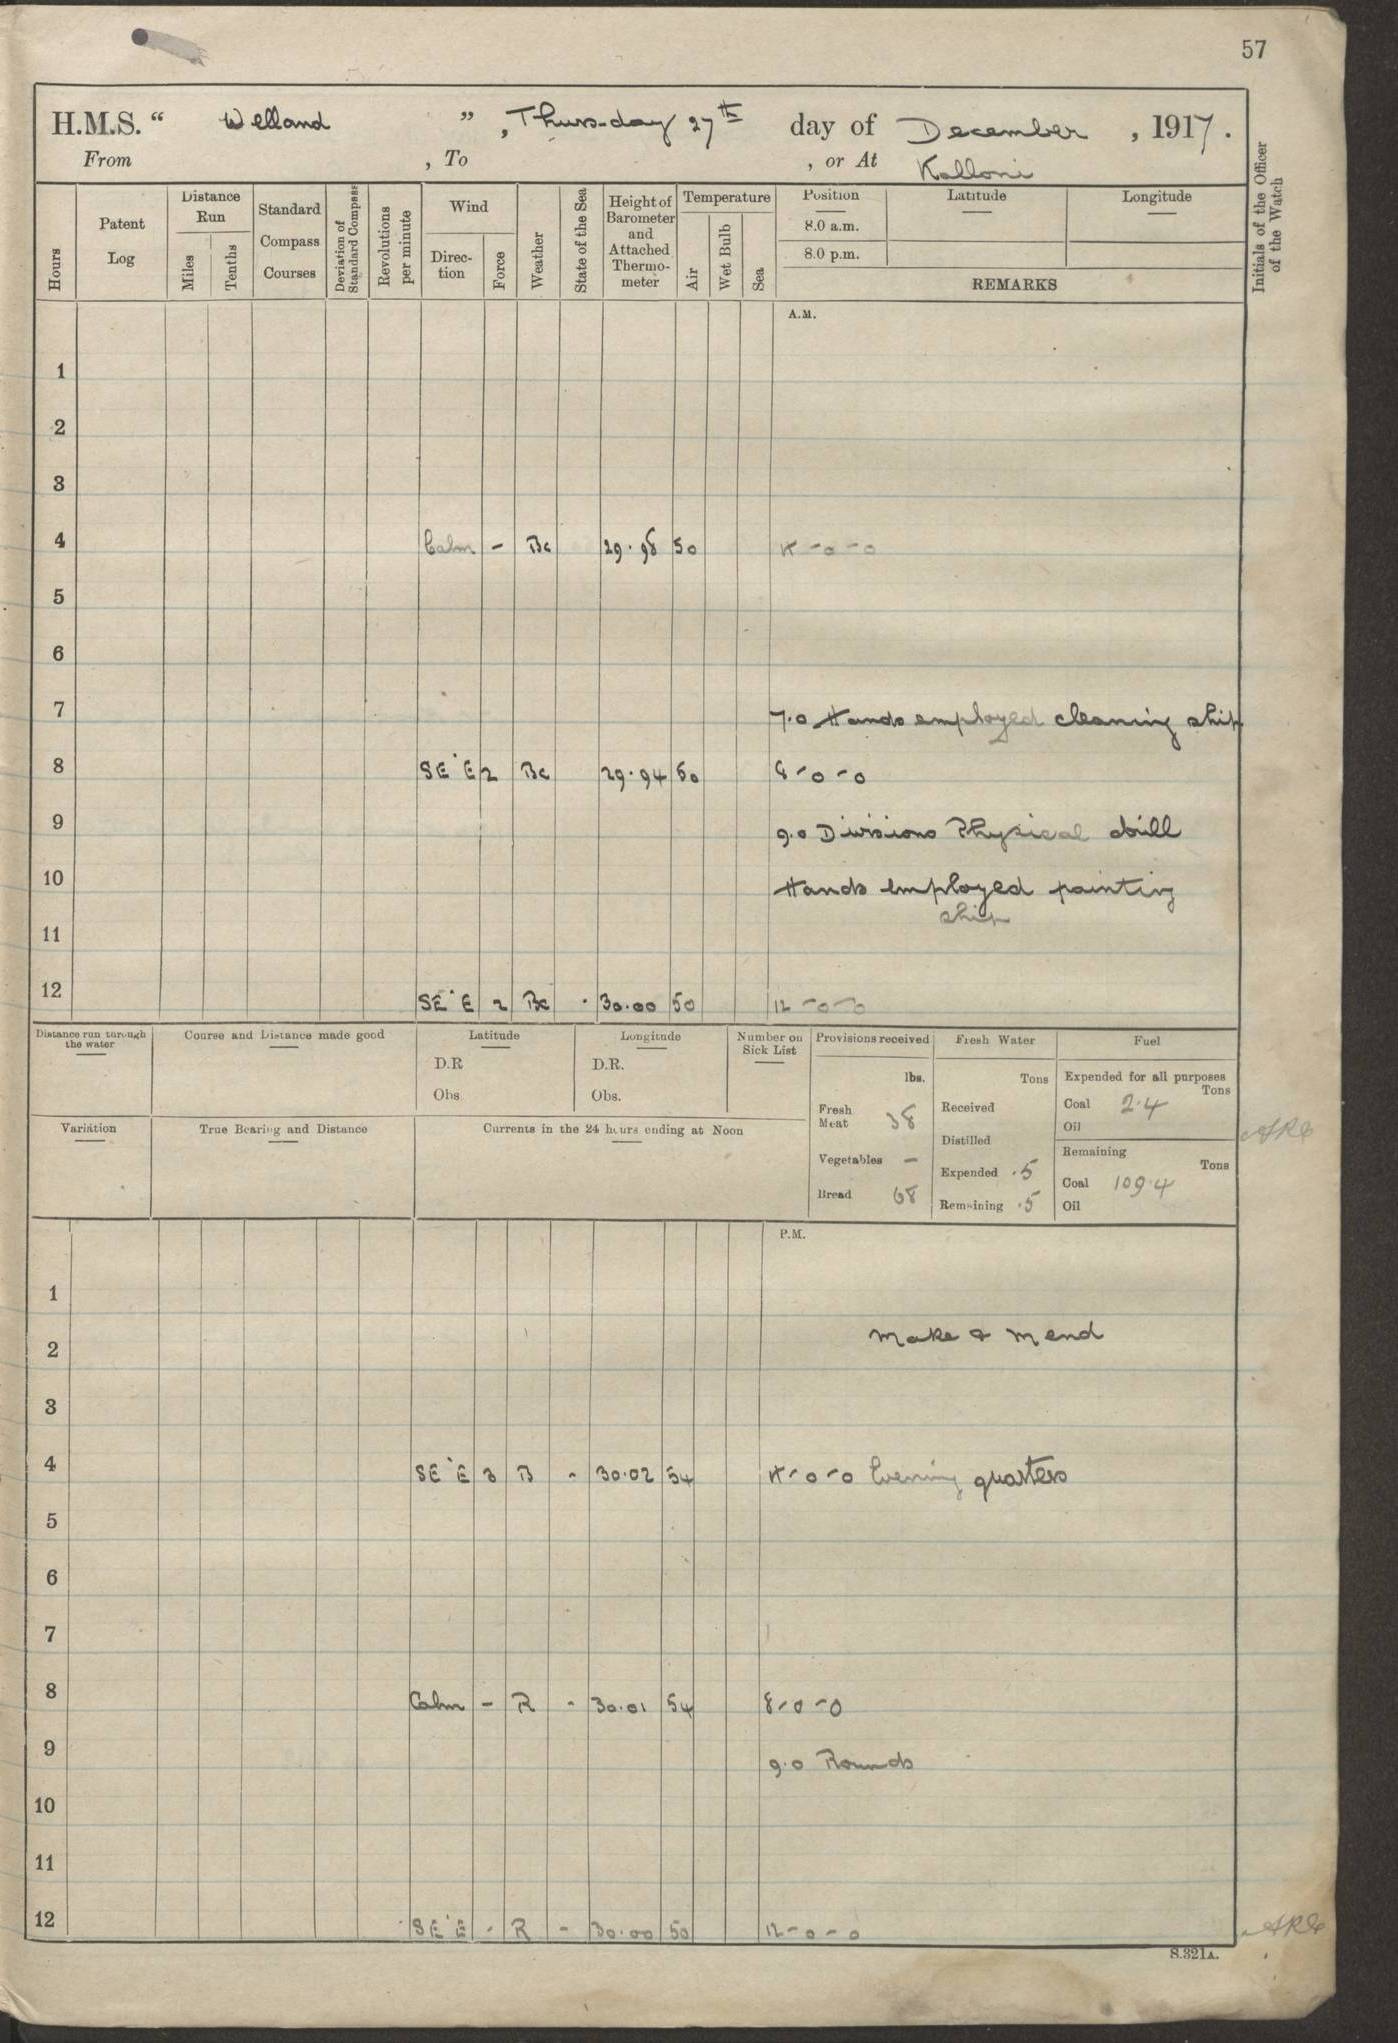 57
H.M.S. " Welland ", Thursday 27th day of December, 1917.
From , To , or At Kalloni
Hours
Patent Log
Distance Run
Miles
Tenths
Standard Compass Courses
Deviation of Standard Compass
Revolutions per minute
Wind
Direction
Force
Weather
State of the Sea
Height of Barometer and Attached Thermometer
Temperature
Air
Wet Bulb
Sea
Position Latitude Longitude
8.0 a.m.
8.0 p.m.
REMARKS
Initials of the Officer of the Watch
A.M.
1
2
3
4 Calm - Bc 29.98 50 4-0-0
5
6
7 7.0 Hands employed cleaning ship
8 SE'E 2 Bc 29.94 50 8-0-0
9 9.0 Divisions Physical drill
10 Hands employed painting
ship
11
12 SE'E 2 Bc - 30.00 50 12-0-0
Distance run through the water
Course and Distance made good
Latitude
D.R
Obs
Longitude
D.R.
Obs.
Number on Sick List
Provisions received
lbs.
Fresh Meat 38
Vegetables -
Bread 68
Fresh Water
Tons
Received
Distilled
Expended .5
Remaining .5
Fuel
Expended for all purposes
Tons
Coal 2.4
Oil
Remaining
Tons
Coal 109.4
Oil
Variation
True Bearing and Distance
Currents in the 24 hours ending at Noon
P.M.
1
2 Make & Mend
3
4 SE'E 3 B - 30.02 54 4-0-0 Evening quarters
5
6
7
8 Calm - R - 30.01 54 8-0-0
9 9.0 Rounds
10
11
12 SE'E - R - 30.00 50 12-0-0
S.321A.